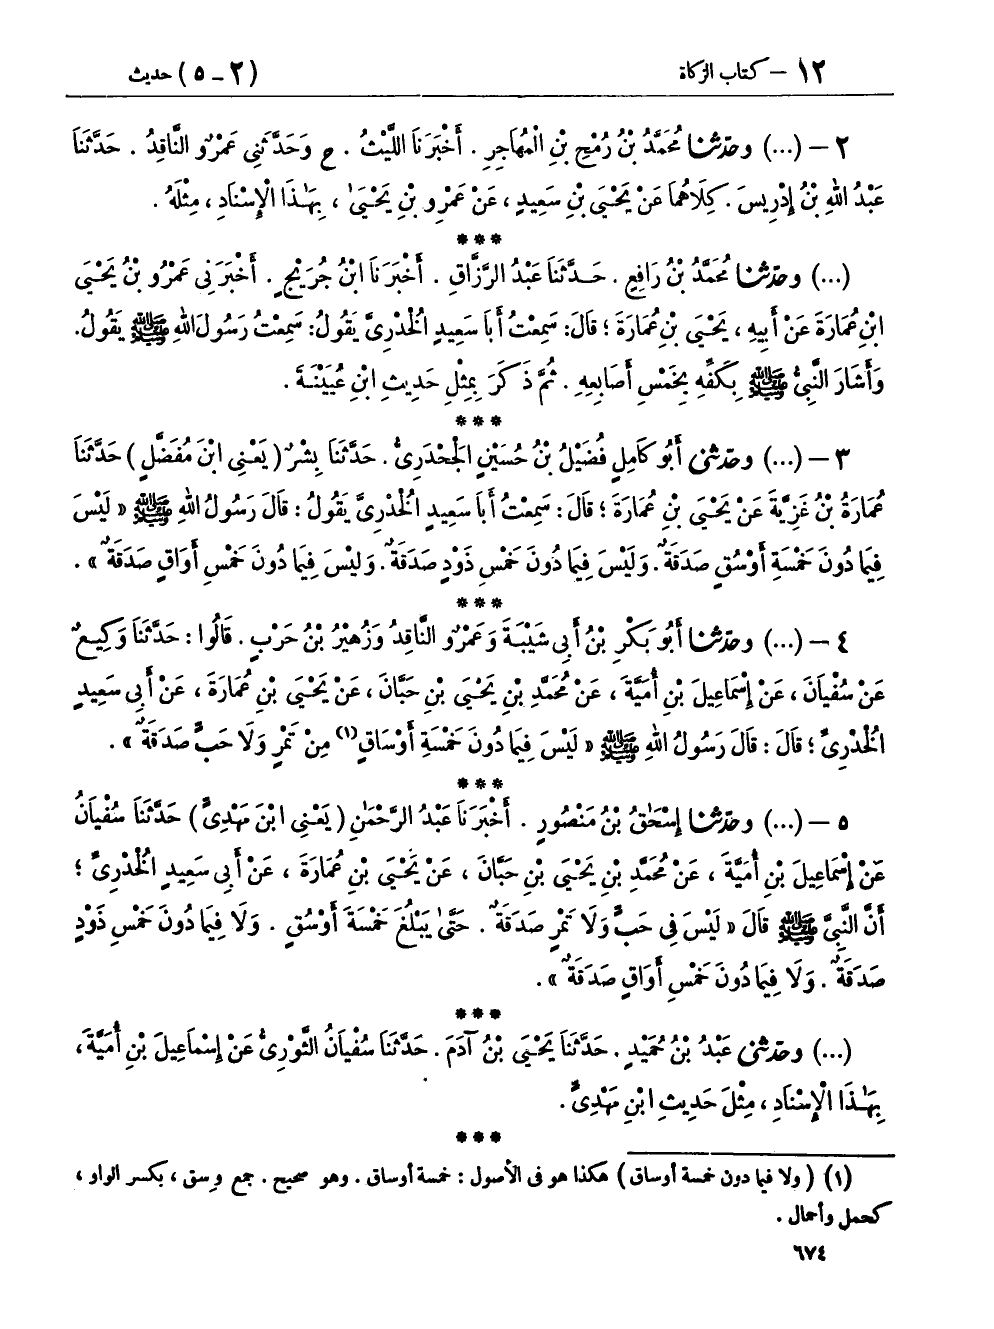 ١٢ – كتاب الزكاة (٢ – ٥) حديث
٢ – (...) وحَدَّثَنَا مُحَمَّدُ بْنُ رُمْحِ بْنِ الْمُهَاجِرِ . أَخْبَرَنَا اللَّيْثُ . ع وَحَدَّثَنِي عَمْرٌو النَّاقِدُ . حَدَّثَنَا
عَبْدُ اللهِ بْنُ إِدْرِيسَ . كِلَاهُمَا عَنْ يَحْيَىٰ بْنِ سَعِيدٍ ، عَنْ عَمْرِو بْنِ يَحْيَىٰ ، بِهَٰذَا الْإِسْنَادِ ، مِثْلَهُ .
***
(...) وحَدَّثَنَا مُحَمَّدُ بْنُ رَافِعٍ . حَدَّثَنَا عَبْدُ الرَّزَّاقِ . أَخْبَرَنَا ابْنُ جُرَيْجٍ . أَخْبَرَنِي عَمْرُو بْنُ يَحْيَى
ابْنِ عُمَارَةَ عَنْ أَبِيهِ ، يَحْيَى بْنِ عُمَارَةَ ؛ قَالَ : سَمِعْتُ أَبَا سَعِيدٍ الْخُدْرِيَّ يَقُولُ : سَمِعْتُ رَسُولَ اللهِ ﷺ يَقُولُ .
وَأَشَارَ النَّبِيُّ ﷺ بِكَفِّهِ بِخَمْسِ أَصَابِعِهِ . ثُمَّ ذَكَرَ بِمِثْلِ حَدِيثِ ابْنِ عُيَيْنَةَ .
***
٣ – (...) وحَدَّثَنِي أَبُو كَامِلٍ فُضَيْلُ بْنُ حُسَيْنٍ الْجَحْدَرِيُّ . حَدَّثَنَا بِشْرٌ ( يَعْنِي ابْنَ مُفَضَّلٍ ) حَدَّثَنَا
عُمَارَةُ بْنُ غَزِيَّةَ عَنْ يَحْيَى بْنِ عُمَارَةَ ؛ قَالَ : سَمِعْتُ أَبَا سَعِيدٍ الْخُدْرِيَّ يَقُولُ : قَالَ رَسُولُ اللهِ ﷺ « لَيْسَ
فِيمَا دُونَ خَمْسَةِ أَوْسُقٍ صَدَقَةٌ . وَلَيْسَ فِيمَا دُونَ خَمْسِ ذَوْدٍ صَدَقَةٌ . وَلَيْسَ فِيمَا دُونَ خَمْسِ أَوَاقٍ صَدَقَةٌ » .
***
٤ – (...) وحَدَّثَنَا أَبُو بَكْرِ بْنُ أَبِي شَيْبَةَ وَعَمْرٌو النَّاقِدُ وَزُهَيْرُ بْنُ حَرْبٍ . قَالُوا : حَدَّثَنَا وَكِيعٌ
عَنْ سُفْيَانَ ، عَنْ إِسْمَاعِيلَ بْنِ أُمَيَّةَ ، عَنْ مُحَمَّدِ بْنِ يَحْيَى بْنِ حَبَّانَ ، عَنْ يَحْيَى بْنِ عُمَارَةَ ، عَنْ أَبِي سَعِيدٍ
الْخُدْرِيِّ ؛ قَالَ : قَالَ رَسُولُ اللهِ ﷺ « لَيْسَ فِيمَا دُونَ خَمْسَةِ أَوْسَاقٍ (١) مِنْ تَمْرٍ وَلَا حَبٍّ صَدَقَةٌ » .
***
٥ – (...) وحَدَّثَنَا إِسْحَٰقُ بْنُ مَنْصُورٍ . أَخْبَرَنَا عَبْدُ الرَّحْمَٰنِ ( يَعْنِي ابْنَ مَهْدِيٍّ ) حَدَّثَنَا سُفْيَانُ
عَنْ إِسْمَاعِيلَ بْنِ أُمَيَّةَ ، عَنْ مُحَمَّدِ بْنِ يَحْيَى بْنِ حَبَّانَ ، عَنْ يَحْيَى بْنِ عُمَارَةَ ، عَنْ أَبِي سَعِيدٍ الْخُدْرِيِّ ؛
أَنَّ النَّبِيَّ ﷺ قَالَ « لَيْسَ فِي حَبٍّ وَلَا تَمْرٍ صَدَقَةٌ . حَتَّىٰ يَبْلُغَ خَمْسَةَ أَوْسُقٍ . وَلَا فِيمَا دُونَ خَمْسِ ذَوْدٍ
صَدَقَةٌ . وَلَا فِيمَا دُونَ خَمْسِ أَوَاقٍ صَدَقَةٌ » .
***
(...) وحَدَّثَنِي عَبْدُ بْنُ حُمَيْدٍ . حَدَّثَنَا يَحْيَى بْنُ آدَمَ . حَدَّثَنَا سُفْيَانُ الثَّوْرِيُّ عَنْ إِسْمَاعِيلَ بْنِ أُمَيَّةَ ،
بِهَٰذَا الْإِسْنَادِ ، مِثْلَ حَدِيثِ ابْنِ مَهْدِيٍّ .
***
(١) ( ولا فيما دون خمسة أوساق ) هكذا هو فى الأصول : خمسة أوساق . وهو صحيح . جمع وِسق ، بكسر الواو ،
كحمل وأحمال .
٦٧٤